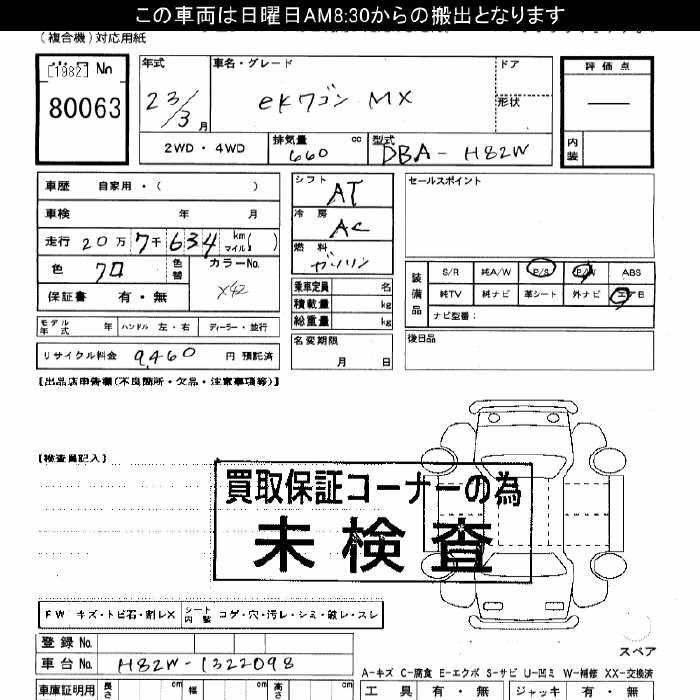 この車両は日曜日AM8:30からの搬出となります
(複合機)対応用紙
[1982] No
80063
年式 23/3月
車名・グレード eKワゴン MX
ドア
形状
評価点
内装
2WD・4WD
排気量 660 cc
型式 DBA-H82W
車歴 自家用・( )
車検 年 月
走行 20万7千634 km マイル( )
色 クロ
色替
カラーNo. X42
保証書 有・無
シフト AT
冷房 AC
燃料 ガソリン
乗車定員 名
積載量 kg
総重量 kg
セールスポイント
装備品
S/R 純A/W P/S P/W ABS
純TV 純ナビ 革シート 外ナビ エアB
ナビ型番:
モデル年式 年 ハンドル 左・右 ディーラー・並行
リサイクル料金 9,460 円 預託済
名変期限 月 日
後日品
【出品店申告欄(不良箇所・欠品・注意事項等)】
【検査員記入】
買取保証コーナーの為
未検査
FW キズ・トビ石・割レX
シート内装 コゲ・穴・汚レ・シミ・破レ・スレ
登録No.
車台No. H82W-1322098
スペア
A-キズ C-腐食 E-エクボ S-サビ U-凹ミ W-補修 XX-交換済
車庫証明用 長さ cm 幅 cm 高さ cm
工具 有・無 ジャッキ 有・無